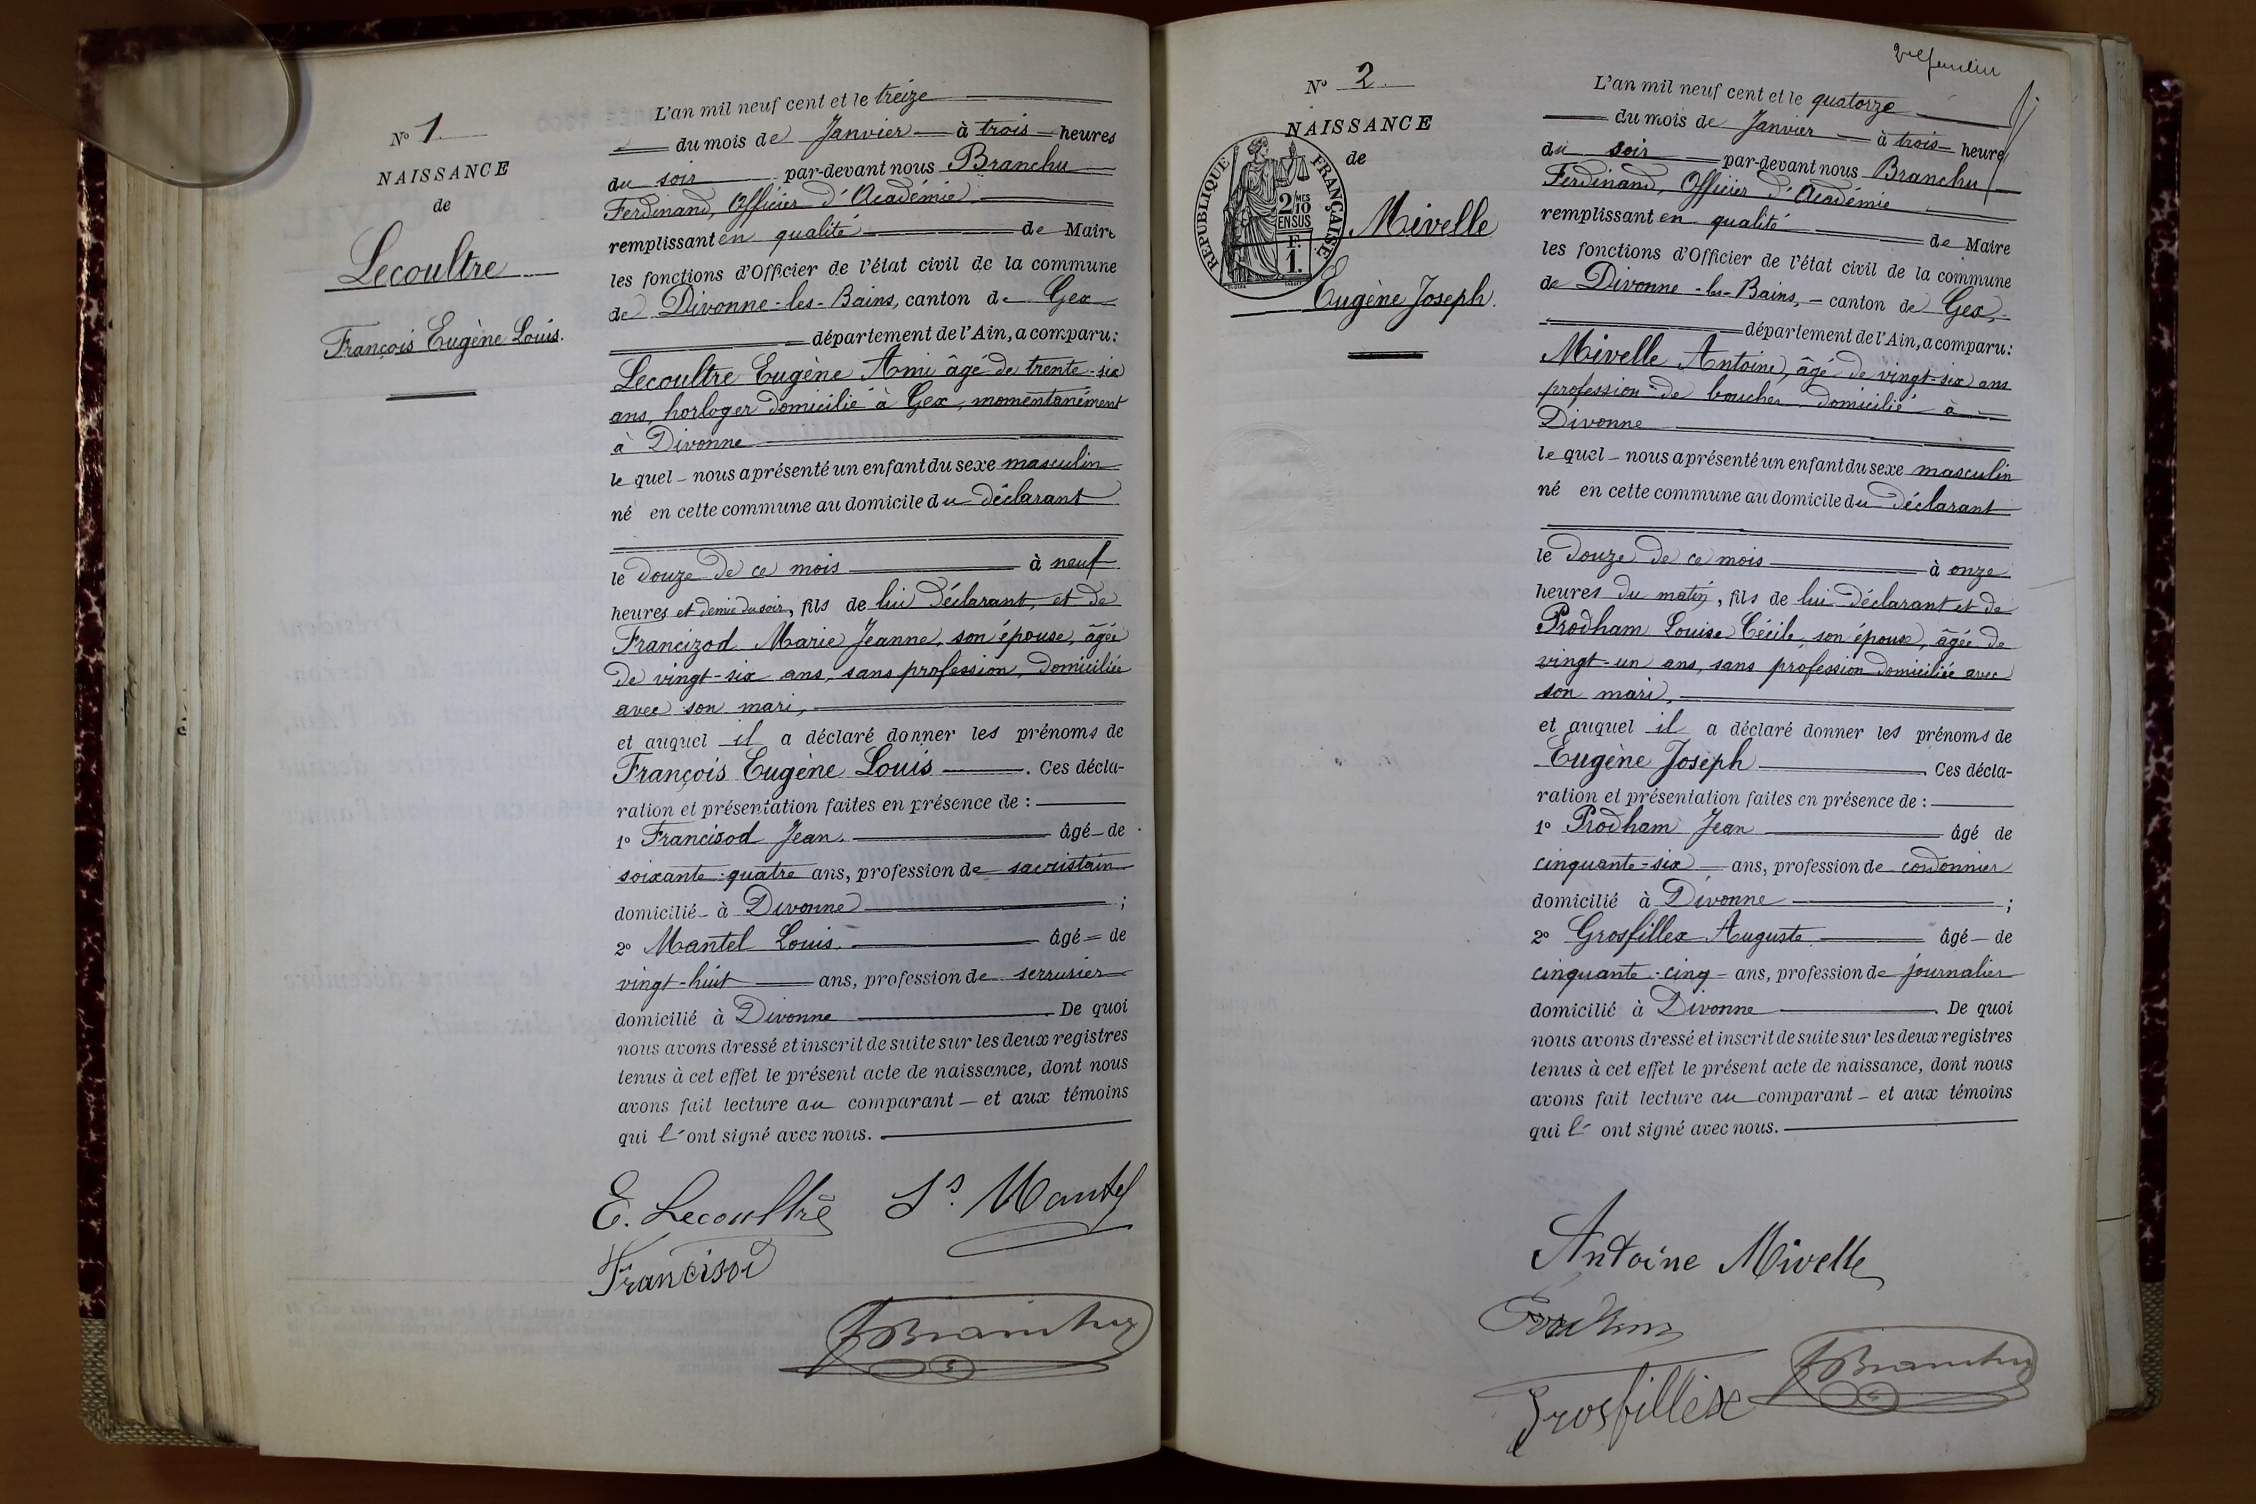 N° 1
NAISSANCE
de
Lecoultre
François Eugène Louis.
L'an mil neuf cent et le treize
du mois de Janvier à trois heures
du soir par-devant nous Branchu
Ferdinand, Officier d'Académie
remplissant en qualité de Maire
les fonctions d'Officier de l'état civil de la commune
de Divonne-les-Bains, canton de Gex
département de l'Ain, a comparu:
Lecoultre Eugène Ami âgé de trente-six
ans, horloger domicilié à Gex, momentanément
à Divonne
le quel nous a présenté un enfant du sexe masculin
né en cette commune au domicile du déclarant
le douze de ce mois à neuf
heures et demie du soir, fils de lui déclarant, et de
Francizod Marie Jeanne, son épouse, âgée
de vingt-six ans, sans profession, domiciliée
avec son mari,
et auquel il a déclaré donner les prénoms de
François Eugène Louis. Ces décla-
ration et présentation faites en présence de :
1° Francisod Jean. âgé de
soixante-quatre ans, profession de sacristain
domicilié à Divonne ;
2° Mantel Louis. âgé de
vingt-huit ans, profession de serrusier
domicilié à Divonne. De quoi
nous avons dressé et inscrit de suite sur les deux registres
tenus à cet effet le présent acte de naissance, dont nous
avons fait lecture au comparant et aux témoins
qui l'ont signé avec nous.
E. Lecoultre Ls. Mantel
Francisod
FBranchu
N° 2
NAISSANCE
de
RÉPUBLIQUE FRANÇAISE
2 MES
10
EN SUS
F.
1.
Mivelle
Eugène Joseph.
L'an mil neuf cent et le quatorze
du mois de Janvier à trois heure
du soir par-devant nous Branchu
Ferdinand, Officier d'Académie
remplissant en qualité de Maire
les fonctions d'Officier de l'état civil de la commune
de Divonne-les-Bains, canton de Gex,
département de l'Ain, a comparu:
Mivelle Antoine, âgé de vingt-six ans
profession de boucher domicilié à
Divonne
le quel nous a présenté un enfant du sexe masculin
né en cette commune au domicile du déclarant
le douze de ce mois à onze
heures du matin, fils de lui déclarant et de
Prodham Louise Cécile, son épouse, âgée de
vingt-un ans, sans profession domiciliée avec
son mari,
et auquel il a déclaré donner les prénoms de
Eugène Joseph. Ces décla-
ration et présentation faites en présence de :
1° Prodham Jean âgé de
cinquante-six ans, profession de cordonnier
domicilié à Divonne ;
2° Grosfillex Auguste. âgé de
cinquante-cinq ans, profession de journalier
domicilié à Divonne. De quoi
nous avons dressé et inscrit de suite sur les deux registres
tenus à cet effet le présent acte de naissance, dont nous
avons fait lecture au comparant et aux témoins
qui l'ont signé avec nous.
Antoine Mivelle
Grosfillex
FBranchu